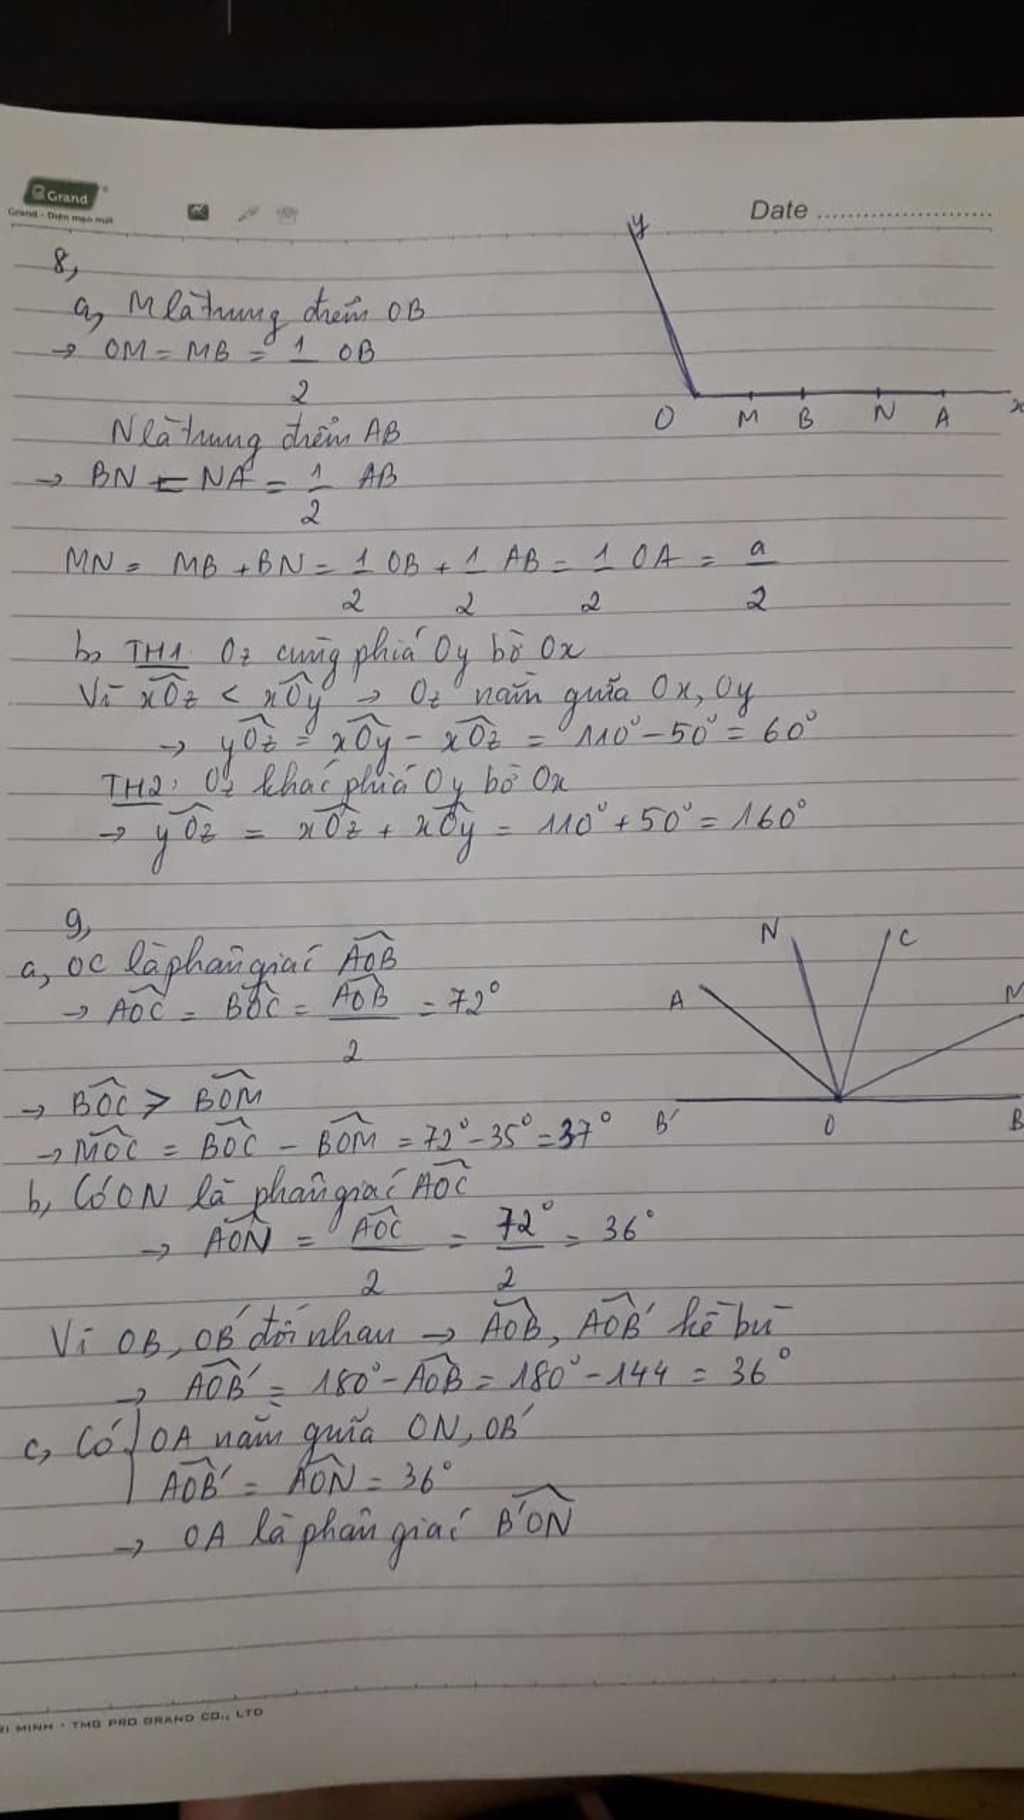 Grand
Grand - Diện mạo mới
Date
8,
a, M là trung điểm OB
→ OM = MB = 1/2 OB
N là trung điểm AB
→ BN = NA = 1/2 AB
MN = MB + BN = 1/2 OB + 1/2 AB = 1/2 OA = a/2
y
O M B N A x
b, TH1: Oz cùng phía Oy bờ Ox
Vì xOz < xOy → Oz nằm giữa Ox, Oy
→ yOz = xOy - xOz = 110° - 50° = 60°
TH2: Oz khác phía Oy bờ Ox
→ yOz = xOz + xOy = 110° + 50° = 160°
9,
a, OC là phân giác AOB
→ AOC = BOC = AOB/2 = 72°
→ BOC > BOM
→ MOC = BOC - BOM = 72° - 35° = 37°
N C
A M
B' O B
b, Có ON là phân giác AOC
→ AON = AOC/2 = 72°/2 = 36°
Vì OB, OB' đối nhau → AOB, AOB' kề bù
→ AOB' = 180° - AOB = 180° - 144 = 36°
c, Có OA nằm giữa ON, OB'
AOB' = AON = 36°
→ OA là phân giác B'ON
RI MINH - TMG PRO GRAND CO., LTD